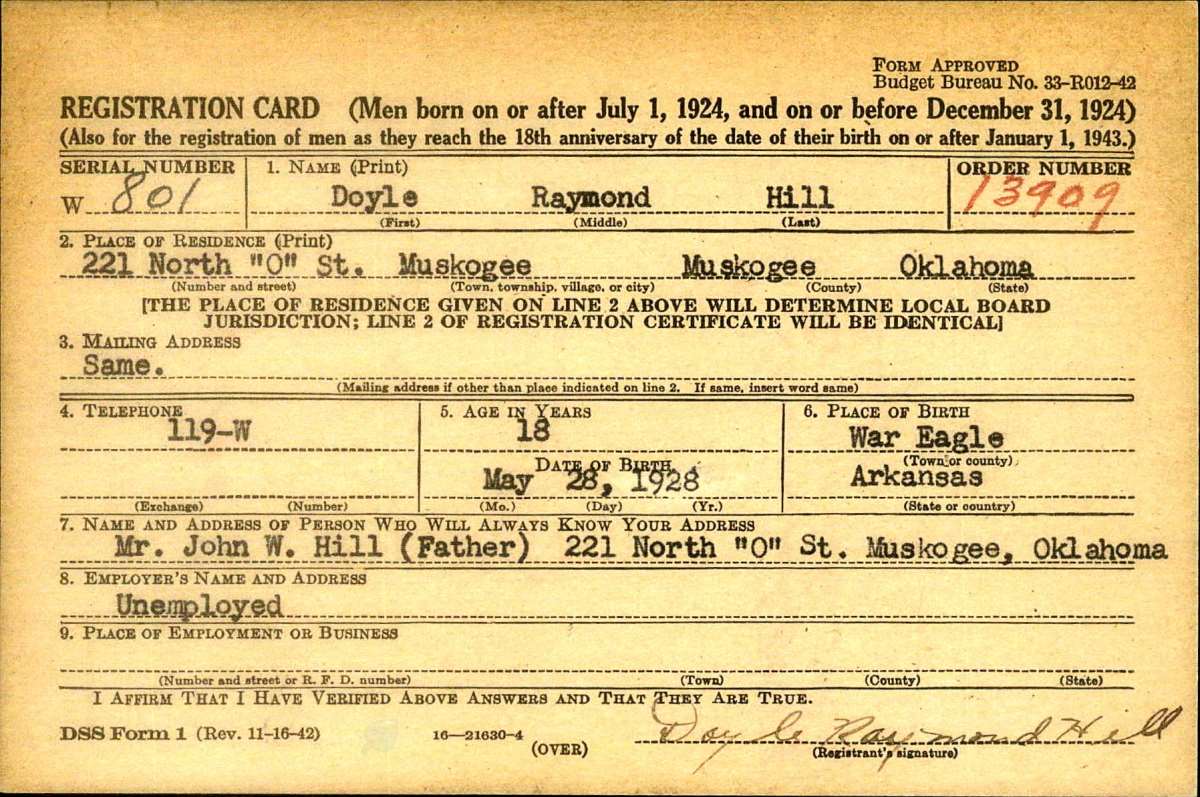 FORM APPROVED
Budget Bureau No. 33-R012-42
REGISTRATION CARD (Men born on or after July 1, 1924, and on or before December 31, 1924)
(Also for the registration of men as they reach the 18th anniversary of the date of their birth on or after January 1, 1943.)
SERIAL NUMBER 1. NAME (Print) ORDER NUMBER
W 801 Doyle Raymond Hill 13909
(First) (Middle) (Last)
2. PLACE OF RESIDENCE (Print)
221 North "O" St. Muskogee Muskogee Oklahoma
(Number and street) (Town, township, village, or city) (County) (State)
[THE PLACE OF RESIDENCE GIVEN ON LINE 2 ABOVE WILL DETERMINE LOCAL BOARD
JURISDICTION; LINE 2 OF REGISTRATION CERTIFICATE WILL BE IDENTICAL]
3. MAILING ADDRESS
Same.
(Mailing address if other than place indicated on line 2. If same, insert word same)
4. TELEPHONE 5. AGE IN YEARS 6. PLACE OF BIRTH
119-W 18 War Eagle
DATE OF BIRTH (Town or county)
May 28, 1928 Arkansas
(Exchange) (Number) (Mo.) (Day) (Yr.) (State or country)
7. NAME AND ADDRESS OF PERSON WHO WILL ALWAYS KNOW YOUR ADDRESS
Mr. John W. Hill (Father) 221 North "O" St. Muskogee, Oklahoma
8. EMPLOYER'S NAME AND ADDRESS
Unemployed
9. PLACE OF EMPLOYMENT OR BUSINESS
(Number and street or R. F. D. number) (Town) (County) (State)
I AFFIRM THAT I HAVE VERIFIED ABOVE ANSWERS AND THAT THEY ARE TRUE.
DSS Form 1 (Rev. 11-16-42) 16—21630-4 Doyle Raymond Hill
(OVER) (Registrant's signature)